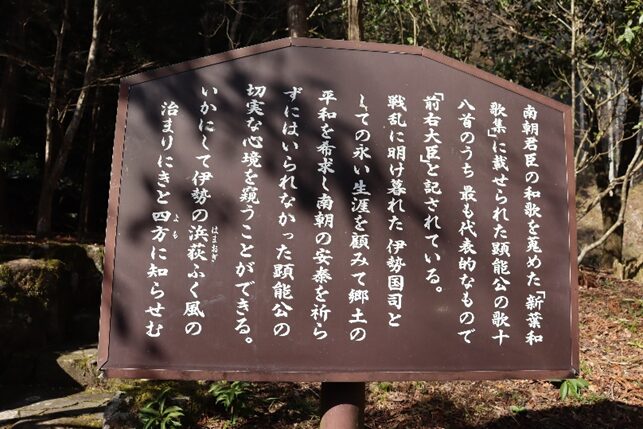 南朝君臣の和歌を蒐めた「新葉和
歌集」に載せられた顕能公の歌十
八首のうち 最も代表的なもので
「前右大臣」と記されている。
戦乱に明け暮れた 伊勢国司と
しての永い生涯を顧みて郷土の
平和を希求し南朝の安泰を祈ら
ずにはいられなかった顕能公の
切実な心境を窺うことができる。
いかにして伊勢の浜荻ふく風の
はまおぎ
治まりにきと四方に知らせむ
よも